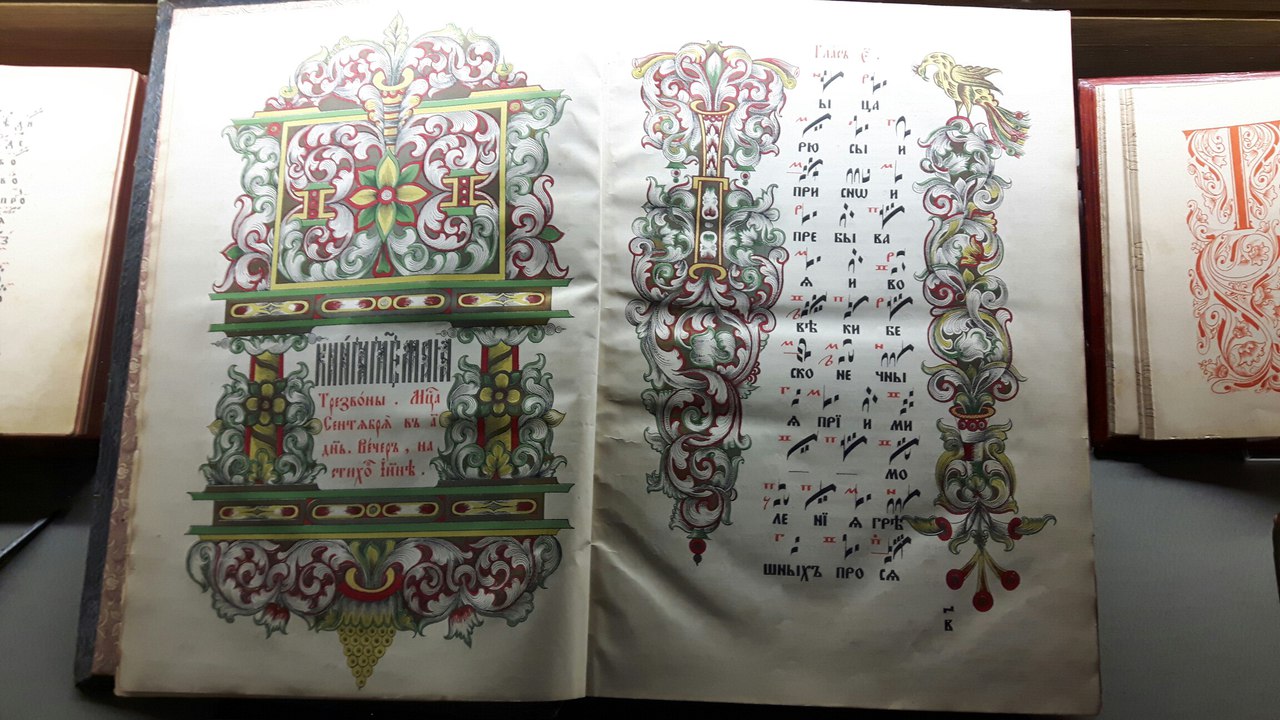 КНИГА ГЛЕ҃МАꙖ
Трезво́ны . Мц҃а
Сентѧбрѧ̀ въ а
дн҃ь. Ве́черъ , на
Гласъ
ы ца
рю сы и
при снѡ и
пре бы ва
ѧ и во
вѣ ки бе
ско не чны
ѧ прї и ми
мо
ле нї ѧ грѣ
шныхъ про сѧ
в